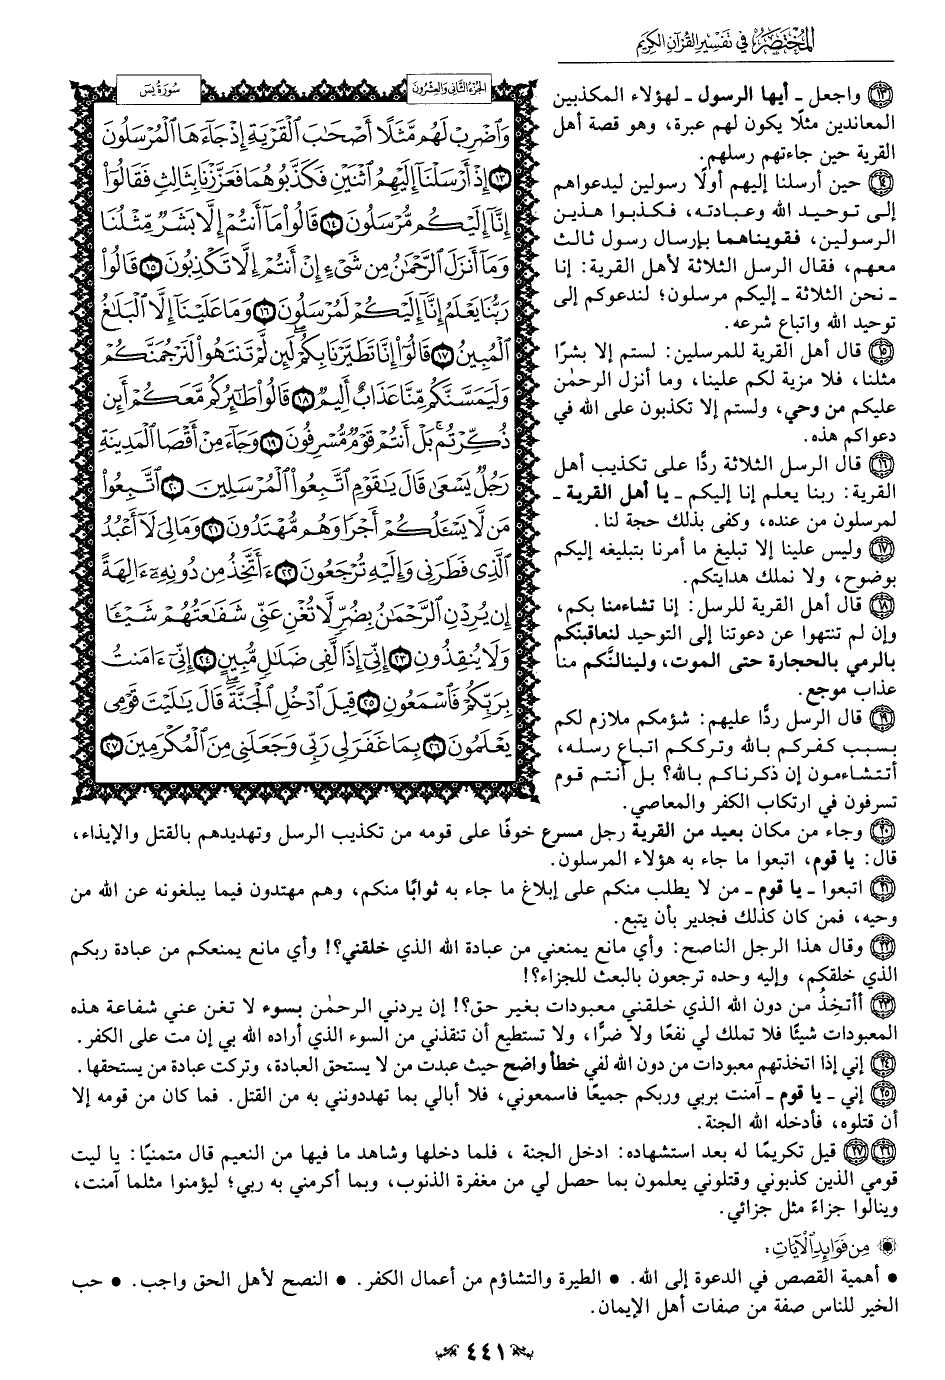 المختصر في تفسير القرآن الكريم
الجزء الثاني والعشرون
سورة يس
وَٱضْرِبْ لَهُم مَّثَلًا أَصْحَٰبَ ٱلْقَرْيَةِ إِذْ جَآءَهَا ٱلْمُرْسَلُونَ
١٣ إِذْ أَرْسَلْنَآ إِلَيْهِمُ ٱثْنَيْنِ فَكَذَّبُوهُمَا فَعَزَّزْنَا بِثَالِثٍ فَقَالُوٓا۟
إِنَّآ إِلَيْكُم مُّرْسَلُونَ ١٤ قَالُوا۟ مَآ أَنتُمْ إِلَّا بَشَرٌ مِّثْلُنَا
وَمَآ أَنزَلَ ٱلرَّحْمَٰنُ مِن شَىْءٍ إِنْ أَنتُمْ إِلَّا تَكْذِبُونَ ١٥ قَالُوا۟
رَبُّنَا يَعْلَمُ إِنَّآ إِلَيْكُمْ لَمُرْسَلُونَ ١٦ وَمَا عَلَيْنَآ إِلَّا ٱلْبَلَٰغُ
ٱلْمُبِينُ ١٧ قَالُوٓا۟ إِنَّا تَطَيَّرْنَا بِكُمْ ۖ لَئِن لَّمْ تَنتَهُوا۟ لَنَرْجُمَنَّكُمْ
وَلَيَمَسَّنَّكُم مِّنَّا عَذَابٌ أَلِيمٌ ١٨ قَالُوا۟ طَٰٓئِرُكُم مَّعَكُمْ ۚ أَئِن
ذُكِّرْتُم ۚ بَلْ أَنتُمْ قَوْمٌ مُّسْرِفُونَ ١٩ وَجَآءَ مِنْ أَقْصَا ٱلْمَدِينَةِ
رَجُلٌ يَسْعَىٰ قَالَ يَٰقَوْمِ ٱتَّبِعُوا۟ ٱلْمُرْسَلِينَ ٢٠ ٱتَّبِعُوا۟
مَن لَّا يَسْـَٔلُكُمْ أَجْرًا وَهُم مُّهْتَدُونَ ٢١ وَمَا لِىَ لَآ أَعْبُدُ
ٱلَّذِى فَطَرَنِى وَإِلَيْهِ تُرْجَعُونَ ٢٢ ءَأَتَّخِذُ مِن دُونِهِۦٓ ءَالِهَةً
إِن يُرِدْنِ ٱلرَّحْمَٰنُ بِضُرٍّ لَّا تُغْنِ عَنِّى شَفَٰعَتُهُمْ شَيْـًٔا
وَلَا يُنقِذُونِ ٢٣ إِنِّىٓ إِذًا لَّفِى ضَلَٰلٍ مُّبِينٍ ٢٤ إِنِّىٓ ءَامَنتُ
بِرَبِّكُمْ فَٱسْمَعُونِ ٢٥ قِيلَ ٱدْخُلِ ٱلْجَنَّةَ ۖ قَالَ يَٰلَيْتَ قَوْمِى
يَعْلَمُونَ ٢٦ بِمَا غَفَرَ لِى رَبِّى وَجَعَلَنِى مِنَ ٱلْمُكْرَمِينَ ٢٧
١٣ واجعل ـ أيها الرسول ـ لهؤلاء المكذبين
المعاندين مثلًا يكون لهم عبرة، وهو قصة أهل
القرية حين جاءتهم رسلهم.
١٤ حين أرسلنا إليهم أولًا رسولين ليدعواهم
إلى توحيد الله وعبادته، فكذبوا هذين
الرسولين، فقويناهما بإرسال رسول ثالث
معهم، فقال الرسل الثلاثة لأهل القرية: إنا
ـ نحن الثلاثة ـ إليكم مرسلون؛ لندعوكم إلى
توحيد الله واتباع شرعه.
١٥ قال أهل القرية للمرسلين: لستم إلا بشرًا
مثلنا، فلا مزية لكم علينا، وما أنزل الرحمٰن
عليكم من وحي، ولستم إلا تكذبون على الله في
دعواكم هذه.
١٦ قال الرسل الثلاثة ردًّا على تكذيب أهل
القرية: ربنا يعلم إنا إليكم ـ يا أهل القرية ـ
لمرسلون من عنده، وكفى بذلك حجة لنا.
١٧ وليس علينا إلا تبليغ ما أمرنا بتبليغه إليكم
بوضوح، ولا نملك هدايتكم.
١٨ قال أهل القرية للرسل: إنا تشاءمنا بكم،
وإن لم تنتهوا عن دعوتنا إلى التوحيد لنعاقبنّكم
بالرمي بالحجارة حتى الموت، ولينالنَّكم منا
عذاب موجع.
١٩ قال الرسل ردًّا عليهم: شؤمكم ملازم لكم
بسبب كفركم بالله وترككم اتباع رسله،
أتتشاءمون إن ذكرناكم بالله؟ بل أنتم قوم
تسرفون في ارتكاب الكفر والمعاصي.
٢٠ وجاء من مكان بعيد من القرية رجل مسرع خوفًا على قومه من تكذيب الرسل وتهديدهم بالقتل والإيذاء،
قال: يا قوم، اتبعوا ما جاء به هؤلاء المرسلون.
٢١ اتبعوا ـ يا قوم ـ من لا يطلب منكم على إبلاغ ما جاء به ثوابًا منكم، وهم مهتدون فيما يبلغونه عن الله من
وحيه، فمن كان كذلك فجدير بأن يتبع.
٢٢ وقال هذا الرجل الناصح: وأي مانع يمنعني من عبادة الله الذي خلقني؟! وأي مانع يمنعكم من عبادة ربكم
الذي خلقكم، وإليه وحده ترجعون بالبعث للجزاء؟!
٢٣ أأتخِذُ من دون الله الذي خلقني معبودات بغير حق؟! إن يردني الرحمٰن بسوء لا تغن عني شفاعة هذه
المعبودات شيئًا فلا تملك لي نفعًا ولا ضرًّا، ولا تستطيع أن تنقذني من السوء الذي أراده الله بي إن مت على الكفر.
٢٤ إني إذا اتخذتهم معبودات من دون الله لفي خطأ واضح حيث عبدت من لا يستحق العبادة، وتركت عبادة من يستحقها.
٢٥ إني ـ يا قوم ـ آمنت بربي وربكم جميعًا فاسمعوني، فلا أبالي بما تهددونني به من القتل. فما كان من قومه إلا
أن قتلوه، فأدخله الله الجنة.
٢٦ ٢٧ قيل تكريمًا له بعد استشهاده: ادخل الجنة ، فلما دخلها وشاهد ما فيها من النعيم قال متمنيًا: يا ليت
قومي الذين كذبوني وقتلوني يعلمون بما حصل لي من مغفرة الذنوب، وبما أكرمني به ربي؛ ليؤمنوا مثلما آمنت،
وينالوا جزاءً مثل جزائي.
من فوائد الآيات:
• أهمية القصص في الدعوة إلى الله. • الطيرة والتشاؤم من أعمال الكفر. • النصح لأهل الحق واجب. • حب
الخير للناس صفة من صفات أهل الإيمان.
٤٤١